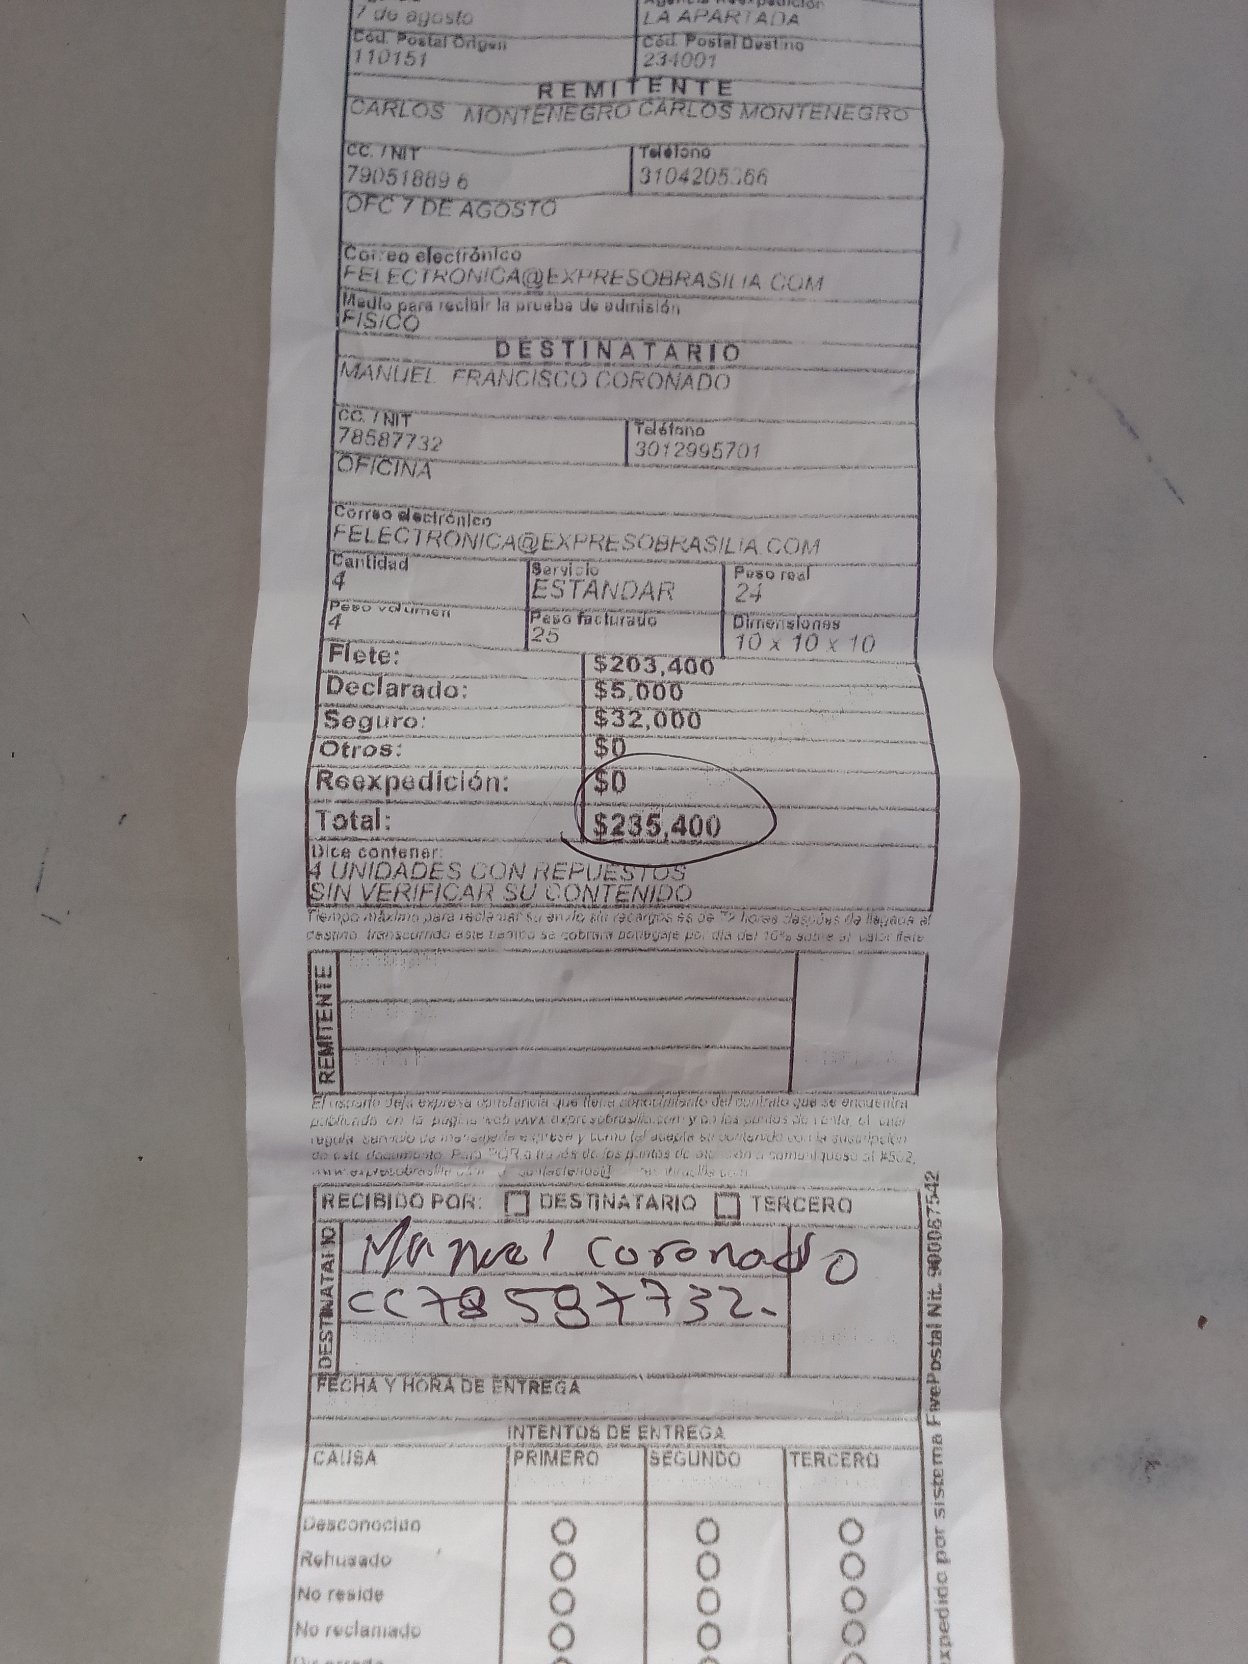 7 de agosto LA APARTADA
Cód. Postal Origen Cód. Postal Destino
110151 234001
REMITENTE
CARLOS MONTENEGRO CARLOS MONTENEGRO
CC. / NIT Teléfono
79051889 6
OFC 7 DE AGOSTO
Correo electrónico
FELECTRONICA@EXPRESOBRASILIA.COM
Medio para recibir la prueba de admisión
FISICO
DESTINATARIO
MANUEL FRANCISCO CORONADO
CC. / NIT Teléfono
78587732 3012995701
OFICINA
Correo electrónico
FELECTRONICA@EXPRESOBRASILIA.COM
Cantidad Servicio Peso real
4 ESTANDAR 24
Peso volumen Peso facturado Dimensiones
4 25 10 x 10 x 10
Flete: $203,400
Declarado: $5,000
Seguro: $32,000
Otros: $0
Reexpedición: $0
Total: $235,400
Dice contener:
4 UNIDADES CON REPUESTOS
SIN VERIFICAR SU CONTENIDO
Tiempo máximo para reclamar su envío sin recargos es de 72 horas después de llegada al
destino, transcurrido este tiempo se cobrara bodegaje por día del 10% sobre el valor flete
REMITENTE
El usuario deja expresa constancia que tiene conocimiento del contrato que se encuentra
publicado en la pagina web www.expresobrasilia.com y en los puntos de venta, el cual
regula servicio de mensajería expresa y como tal acepta su contenido con la suscripción
de este documento. Para PQR a través de los puntos de
RECIBIDO POR: DESTINATARIO TERCERO
DESTINATARIO
Manuel Coronado
CC 78587732.
FECHA Y HORA DE ENTREGA
INTENTOS DE ENTREGA
CAUSA PRIMERO SEGUNDO TERCERO
Desconocido
Rehusado
No reside
No reclamado
expedido por sistema FivePostal Nit. 900087542